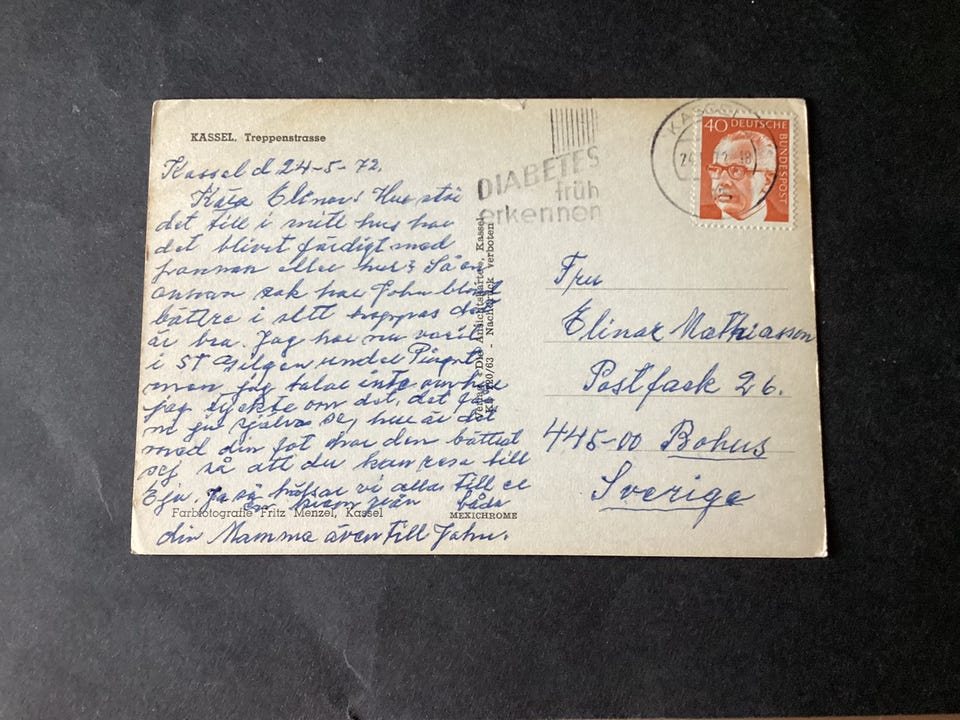 KASSEL, Treppenstrasse
Kassel d 24-5-72.
Kära Elinor! Hur står
det till i mitt hus har
det blivit färdigt med
pannan eller hur? Så en
annan sak har John blivit
bättre i sitt
är bra. Jag har nu varit
i ST Gilgen under Pingst
men jag talar inte om hur
jag tyckte om det, det får
ni ju själva se, hur är det
med din fot har den bättrat
sej så att du kan resa till
Eja, Ja så hälsar vi alla till er
en kram från båda
din Mamma även till John.
Farbfotografie Fritz Menzel, Kassel
MEXICHROME
Verlag: Die Ansichtskarte, Kassel
Ks 120/63 - Nachdruck verboten
DIABETES
früh
erkennen
KASSEL
24. 72-18
40 DEUTSCHE
BUNDESPOST
Fru
Elinor Mathiasson
Postfack 26.
445-00 Bohus
Sverige